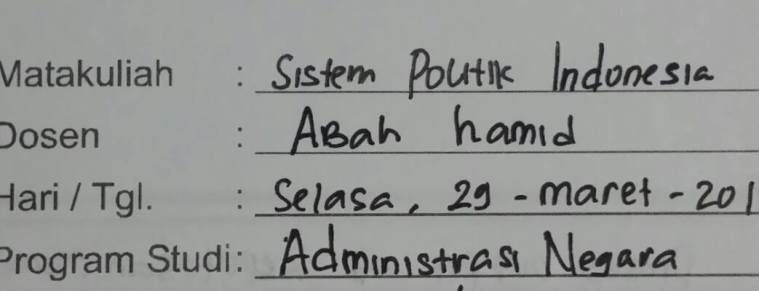 Matakuliah : Sistem Politik Indonesia
Dosen : ABah hamid
Hari / Tgl. : Selasa, 29 - maret - 201
Program Studi: Administrasi Negara